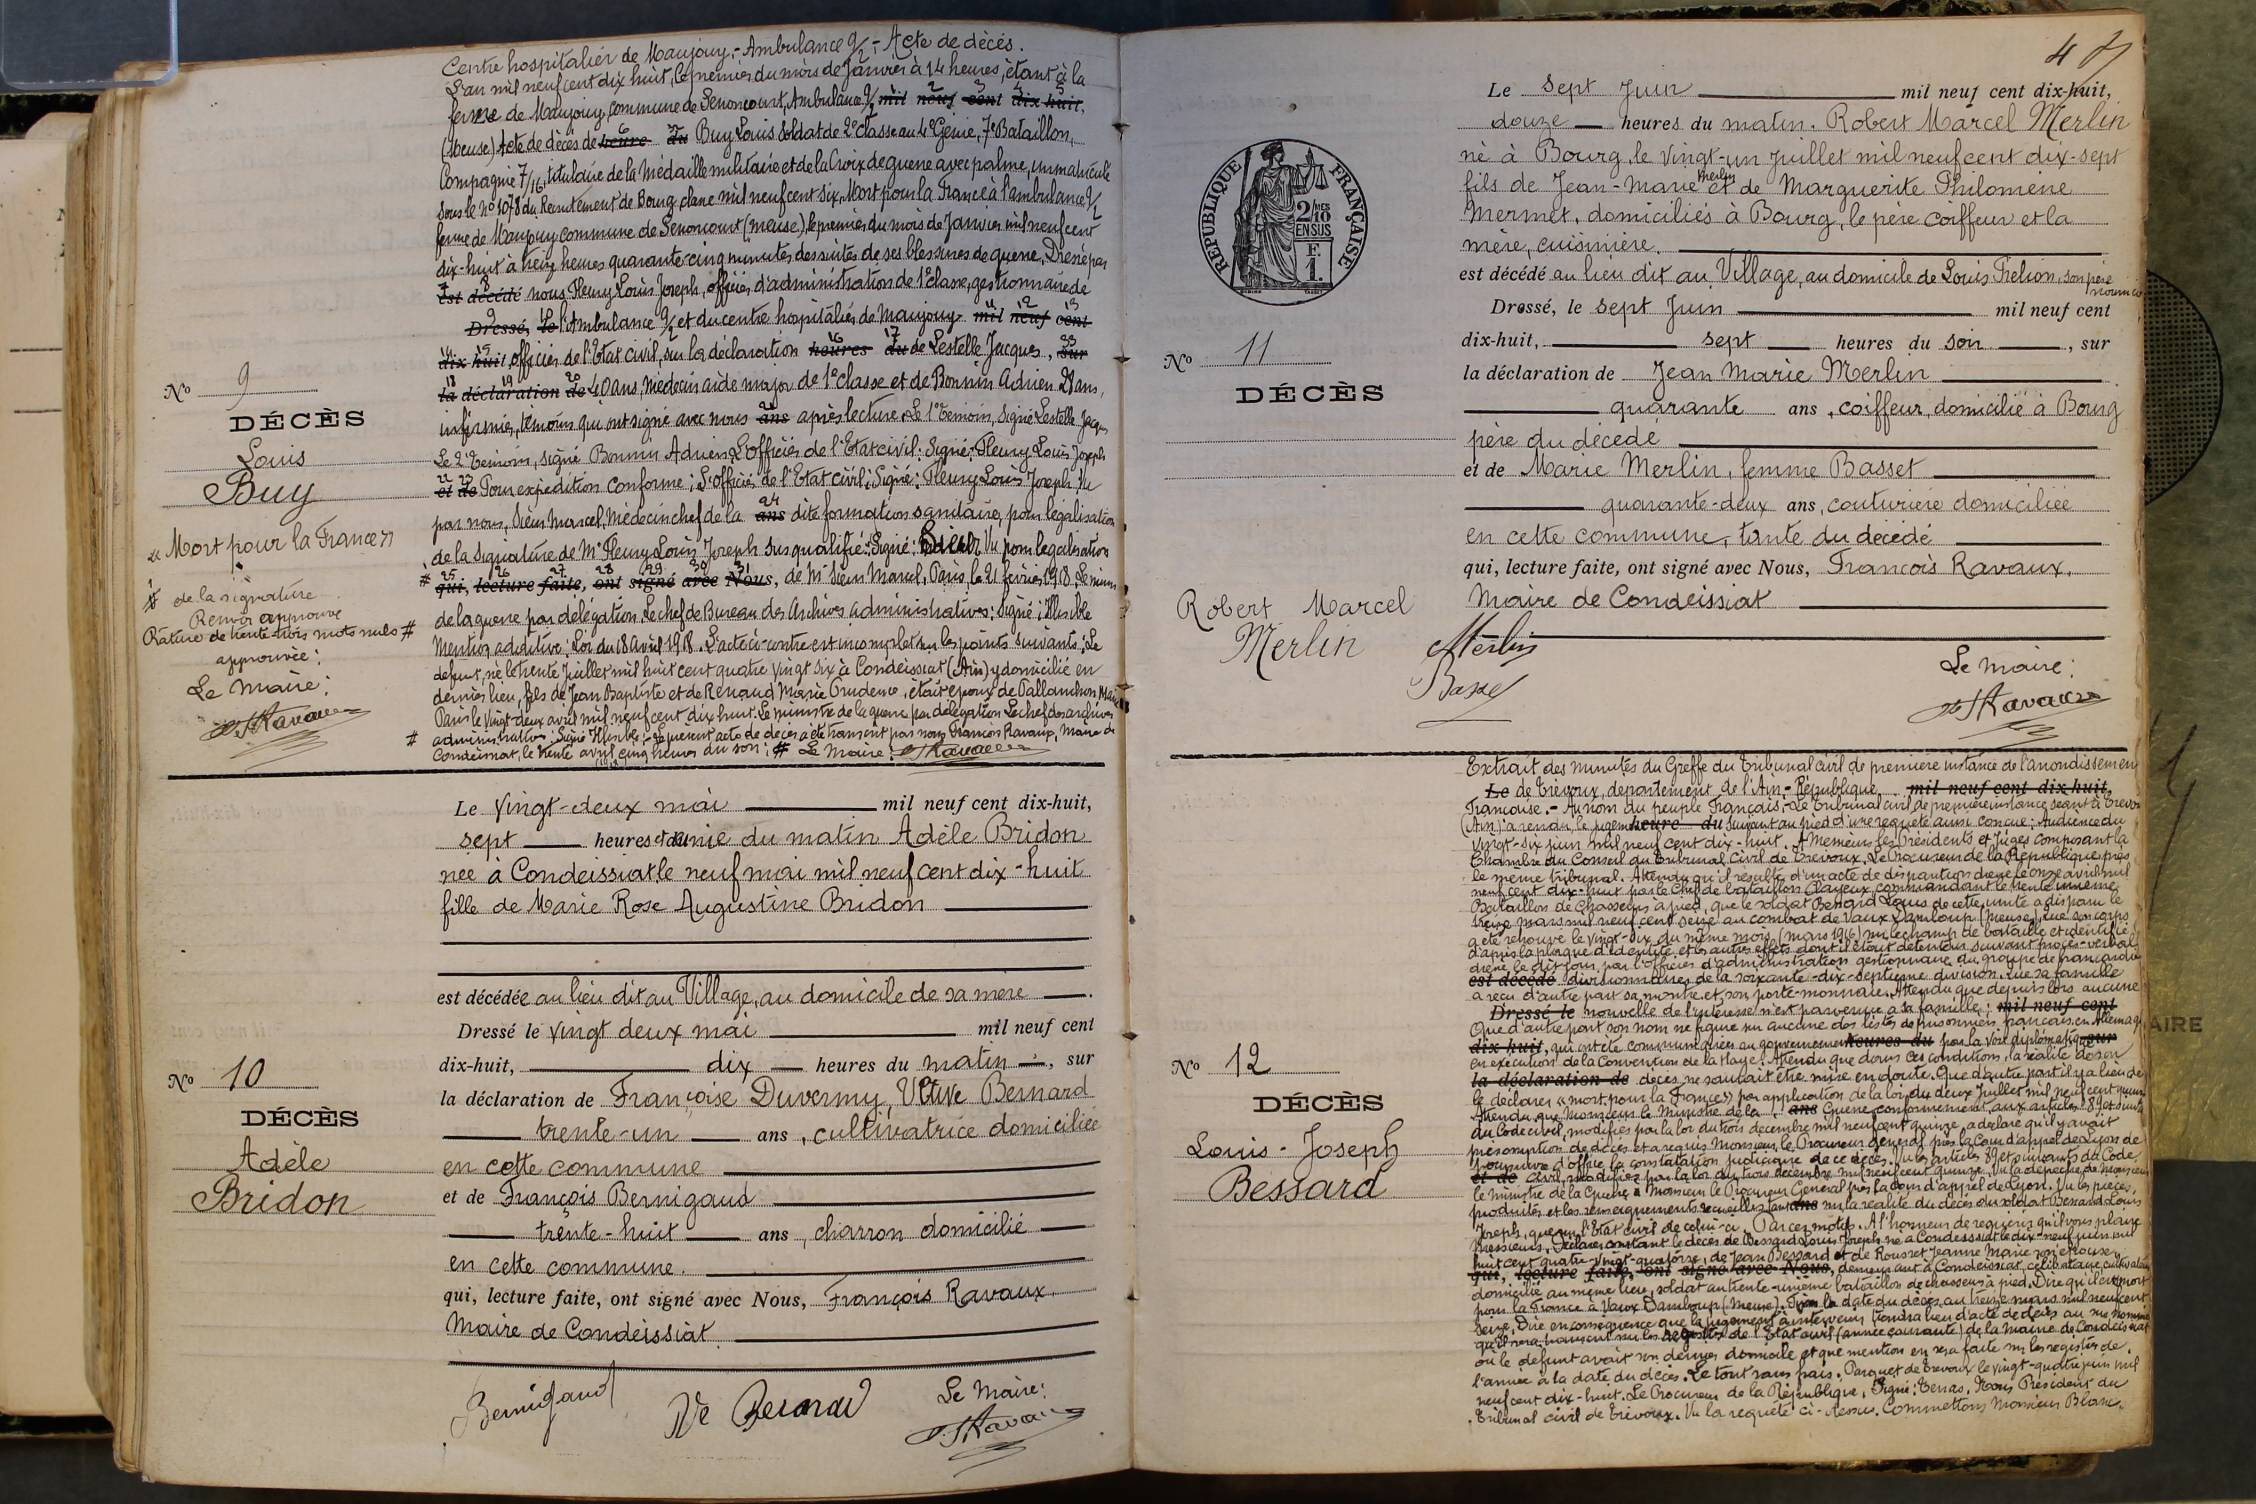 Centre hospitalier de Maujouy.- Ambulance 9/2 - Acte de décès.
L'an mil neuf cent dix huit, le premier du mois de Janvier à 14 heures, étant à la
ferme de Maujouy, commune de Senoncourt, Ambulance 9/2 mil neuf cent dix-huit,
(Meuse) Acte de décès de heure du Buy Louis soldat de 2e classe au 4e Génie, 7e Bataillon,
Compagnie 7/16, titulaire de la Médaille militaire et de la Croix de guerre avec palme, immatriculé
sous le No 1078 du Recrutement de Bourg, classe mil neuf cent six, Mort pour la France à l'ambulance 9/2
ferme de Maujouy commune de Senoncourt (Meuse), le premier du mois de Janvier mil neuf cent
dix-huit à treize heures quarante-cinq minutes des suites de ses blessures de guerre, Dressé par
est décédé nous Fleury Louis Joseph, officier d'administration de 1e classe, gestionnaire de
Dressé, le l'Ambulance 9/2 et du centre hospitalier de Maujouy mil neuf cent
dix-huit, officier de l'Etat civil, sur la déclaration heures du de Lestelle Jacques, sur
la déclaration de 40 ans, Médecin aide major de 1e classe et de Bonnin Adrien 28 ans,
infirmier, témoins qui ont signé avec nous ans après lecture. Le 1e Témoin, signé Lestelle Jacques
Le 2e Témoin, signé Bonnin Adrien, L'Officier de l'Etat civil : Signé : Fleury Louis Joseph
et de Pour expédition conforme ; L'officier de l'Etat civil : Signé : Fleury Louis Joseph, Vu
par nous, Sieur Marcel, Médecin chef de la ans dite formation sanitaire, pour légalisation
de la signature de Mr Fleury Louis Joseph susqualifié : Signé : Sieur Vu pour légalisation
# qui, lecture faite, ont signé avec Nous, de Mr Sieur Marcel, Paris, le 21 février 1918, Le ministre
de la guerre par délégation, Le chef de Bureau des Archives administratives : Signé : Illisible
Mention additive : Loi du 18 avril 1918. L'acte ci-contre est incomplet sur les points suivants : Le
défunt, né le trente Juillet mil huit cent quatre vingt six à Condeissiat (Ain) y domicilié en
dernier lieu, fils de Jean Baptiste et de Renaud Marie Prudence, était époux de Pallanchon Marie
Paris le vingt-deux avril mil neuf cent dix huit. Le ministre de la guerre par délégation Le chef des archives
# administratives : Signé Illisible : Le présent acte de décès a été transcrit par nous François Ravaux, Maire de
Condeissiat, le trente avril cinq heures du soir : # Le Maire : F. Ravaux
No 9
DÉCÈS
Louis
Buy
« Mort pour la France »
# de la signature
Renvoi approuvé
Rature de trente-trois mots nuls #
approuvée :
Le Maire :
F. Ravaux
Le vingt-deux mai mil neuf cent dix-huit,
sept heures et demie du matin Adèle Bridon
née à Condeissiat le neuf mai mil neuf cent dix-huit
fille de Marie Rose Augustine Bridon
est décédée au lieu dit au Village, au domicile de sa mère.
Dressé le vingt deux mai mil neuf cent
dix-huit, dix heures du matin, sur
la déclaration de Françoise Duvermy, Veuve Bernard
trente-un ans, cultivatrice domiciliée
en cette commune
et de François Bernigaud
trente-huit ans, charron domicilié
en cette commune.
qui, lecture faite, ont signé avec Nous, François Ravaux,
Maire de Condeissiat
No 10
DÉCÈS
Adèle
Bridon
Bernigaud Ve Bernard Le Maire :
F. Ravaux
RÉPUBLIQUE FRANÇAISE
2/10 MES
EN SUS
F.
1.
Le sept Juin mil neuf cent dix-huit,
douze heures du matin. Robert Marcel Merlin
né à Bourg, le vingt-un Juillet mil neuf cent dix-sept
fils de Jean-Marie Merlin et de Marguerite Philomène
Mermet, domiciliés à Bourg, le père coiffeur et la
mère, cuisinière.
est décédé au lieu dit au Village, au domicile de Louis Frelion, son père nourricier
Dressé, le sept Juin mil neuf cent
dix-huit, sept heures du soir, sur
la déclaration de Jean Marie Merlin
quarante ans, coiffeur, domicilié à Bourg
père du décédé
et de Marie Merlin, femme Basset
quarante-deux ans, couturière domiciliée
en cette commune, tante du décédé
qui, lecture faite, ont signé avec Nous, François Ravaux,
Maire de Condeissiat
No 11
DÉCÈS
Robert Marcel
Merlin
Merlin
Basset
Le Maire :
F. Ravaux
Extrait des minutes du Greffe du Tribunal civil de première instance de l'arrondissement
Le de Trévoux, département de l'Ain - République mil neuf cent dix-huit,
Française.- Au nom du peuple Français.- Le Tribunal civil de première instance séant à Trévoux
(Ain) a rendu le jugement heure du suivant au pied d'une requête ainsi conçue : Audience du
vingt-six juin mil neuf cent dix-huit. A Messieurs les Présidents et Juges composant la
Chambre du Conseil du Tribunal Civil de Trévoux. Le Procureur de la République près
le même tribunal. Attendu qu'il résulte d'un acte de disparition dressé le onze avril mil
neuf cent dix-huit par le Chef de bataillon Clayeux, commandant le trente unième
Bataillon de Chasseurs à pied, que le soldat Bessard Louis de cette unité a disparu le
treize mars mil neuf cent seize au combat de Vaux Damloup (Meuse), que son corps
a été retrouvé le vingt-six du même mois (mars 1916) sur le champ de bataille et identifié
d'après la plaque d'identité et les autres effets dont il était détenteur suivant procès-verbal
dressé le dit jour par l'officier d'administration gestionnaire du groupe de brancardiers
est décédé divisionnaires de la soixante-dix-septième division. Que sa famille
a reçu d'autre part sa montre et son porte-monnaie. Attendu que depuis lors aucune
Dressé le nouvelle de l'intéressé n'est parvenue à sa famille ; mil neuf cent
Que d'autre part son nom ne figure sur aucune des listes de prisonniers français en Allemagne
dix-huit, qui ont été communiquées au gouvernement heures du par la voie diplomatique sur
en exécution de la Convention de la Haye. Attendu que dans ces conditions, la réalité de son
la déclaration de décès ne saurait être mise en doute. Que d'autre part il y a lieu de
le déclarer « mort pour la France » par application de la loi du deux Juillet mil neuf cent quinze
Attendu que Monsieur le Ministre de la ans Guerre conformément aux articles 89 et suivants
du Code civil, modifiés par la loi du trois décembre mil neuf cent quinze, a déclaré qu'il y avait
présomption de décès et a requis Monsieur le Procureur Général près la Cour d'appel de Lyon de
poursuivre d'office la constatation judiciaire de ce décès. Vu les articles 89 et suivants du Code
et de civil, modifiés par la loi du trois décembre mil neuf cent quinze, Vu la dépêche de Monsieur
le ministre de la Guerre à Monsieur le Procureur Général près la Cour d'appel de Lyon. Vu les pièces
produites et les renseignements recueillis tant ans sur la réalité du décès du soldat Bessard Louis
Joseph, que sur l'Etat civil de celui-ci. Par ces motifs. A l'honneur de requérir qu'il vous plaise
Messieurs, Déclarer constant le décès de Bessard Louis Joseph né à Condeissiat le dix-neuf juin mil
huit cent quatre vingt-quatorze, de Jean Bessard et de Rousset Jeanne Marie son épouse,
qui, lecture faite, ont signé avec Nous, demeurant à Condeissiat, célibataire cultivateur
domicilié au même lieu, soldat au trente-unième bataillon de chasseurs à pied, Dire qu'il est mort
pour la France à Vaux Damloup (Meuse). Fixer la date du décès au treize mars mil neuf cent
seize, Dire en conséquence que le jugement à intervenir tiendra lieu d'acte de décès au sus nommé
qu'il sera transcrit sur les registres de l'Etat civil (année courante) de la Mairie de Condeissiat
où le défunt avait son dernier domicile et que mention en sera faite sur les registres de
l'année à la date du décès. Le tout sans frais. Parquet de Trévoux le vingt-quatre juin mil
neuf cent dix-huit. Le Procureur de la République, Signé : Tenas. Nous Président du
Tribunal civil de Trévoux. Vu la requête ci-dessus. Commettons Monsieur Blanc,
No 12
DÉCÈS
Louis-Joseph
Bessard